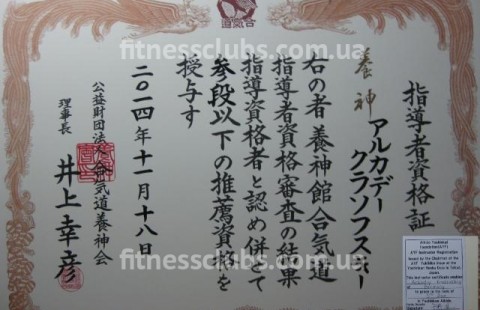 合気道
指導者資格証
養神
アルカデー
クラソフスキー
右の者養神館合気道
指導者資格審査の結果
指導資格者と認め併せて
参段以下の推薦資格を
授与す
二〇一四年十一月十八日
公益財団法人合気道養神会
理事長 井上幸彦
fitnessclubs.com.ua
fitnessclubs.com.ua
fitnessclubs.com.ua